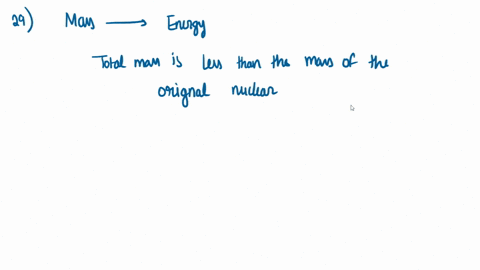 29) Mass → Energy
Total mass is less than the mass of the
orignal nuclear